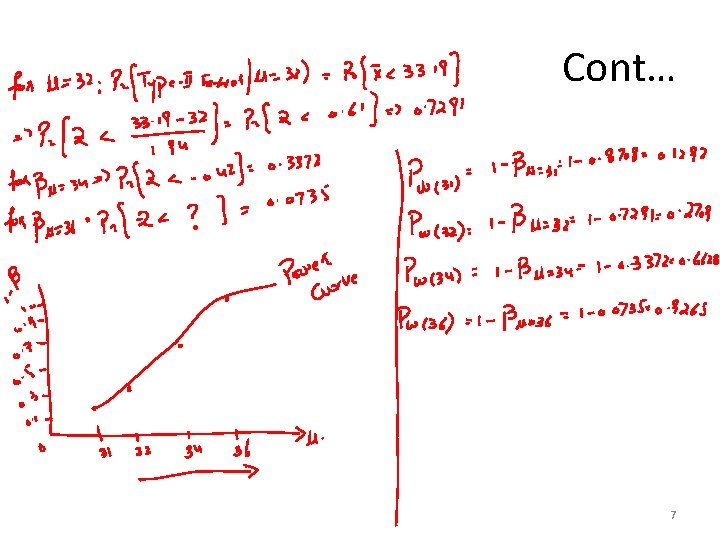 Cont…
for μ=32: Pr{Type-II Error | μ=32} = Pr{x̄ < 33.19}
=> Pr{Z < (33.19-32)/1.94} = Pr{Z < 0.61} => 0.7291
for βμ=34 => Pr{Z < -0.42} = 0.3372
for βμ=36 = Pr{Z < ? } = 0.0735
Pw(31) = 1-βμ=31 = 1-0.8708= 0.1292
Pw(32) = 1-βμ=32 = 1-0.7291= 0.2709
Pw(34) = 1-βμ=34 = 1-0.3372=0.6628
Pw(36) = 1-βμ=36 = 1-0.0735=0.9265
β
Power
Curve
0.9
0.7
0.5
0.3
0.1
0 31 32 34 36 μ.
7